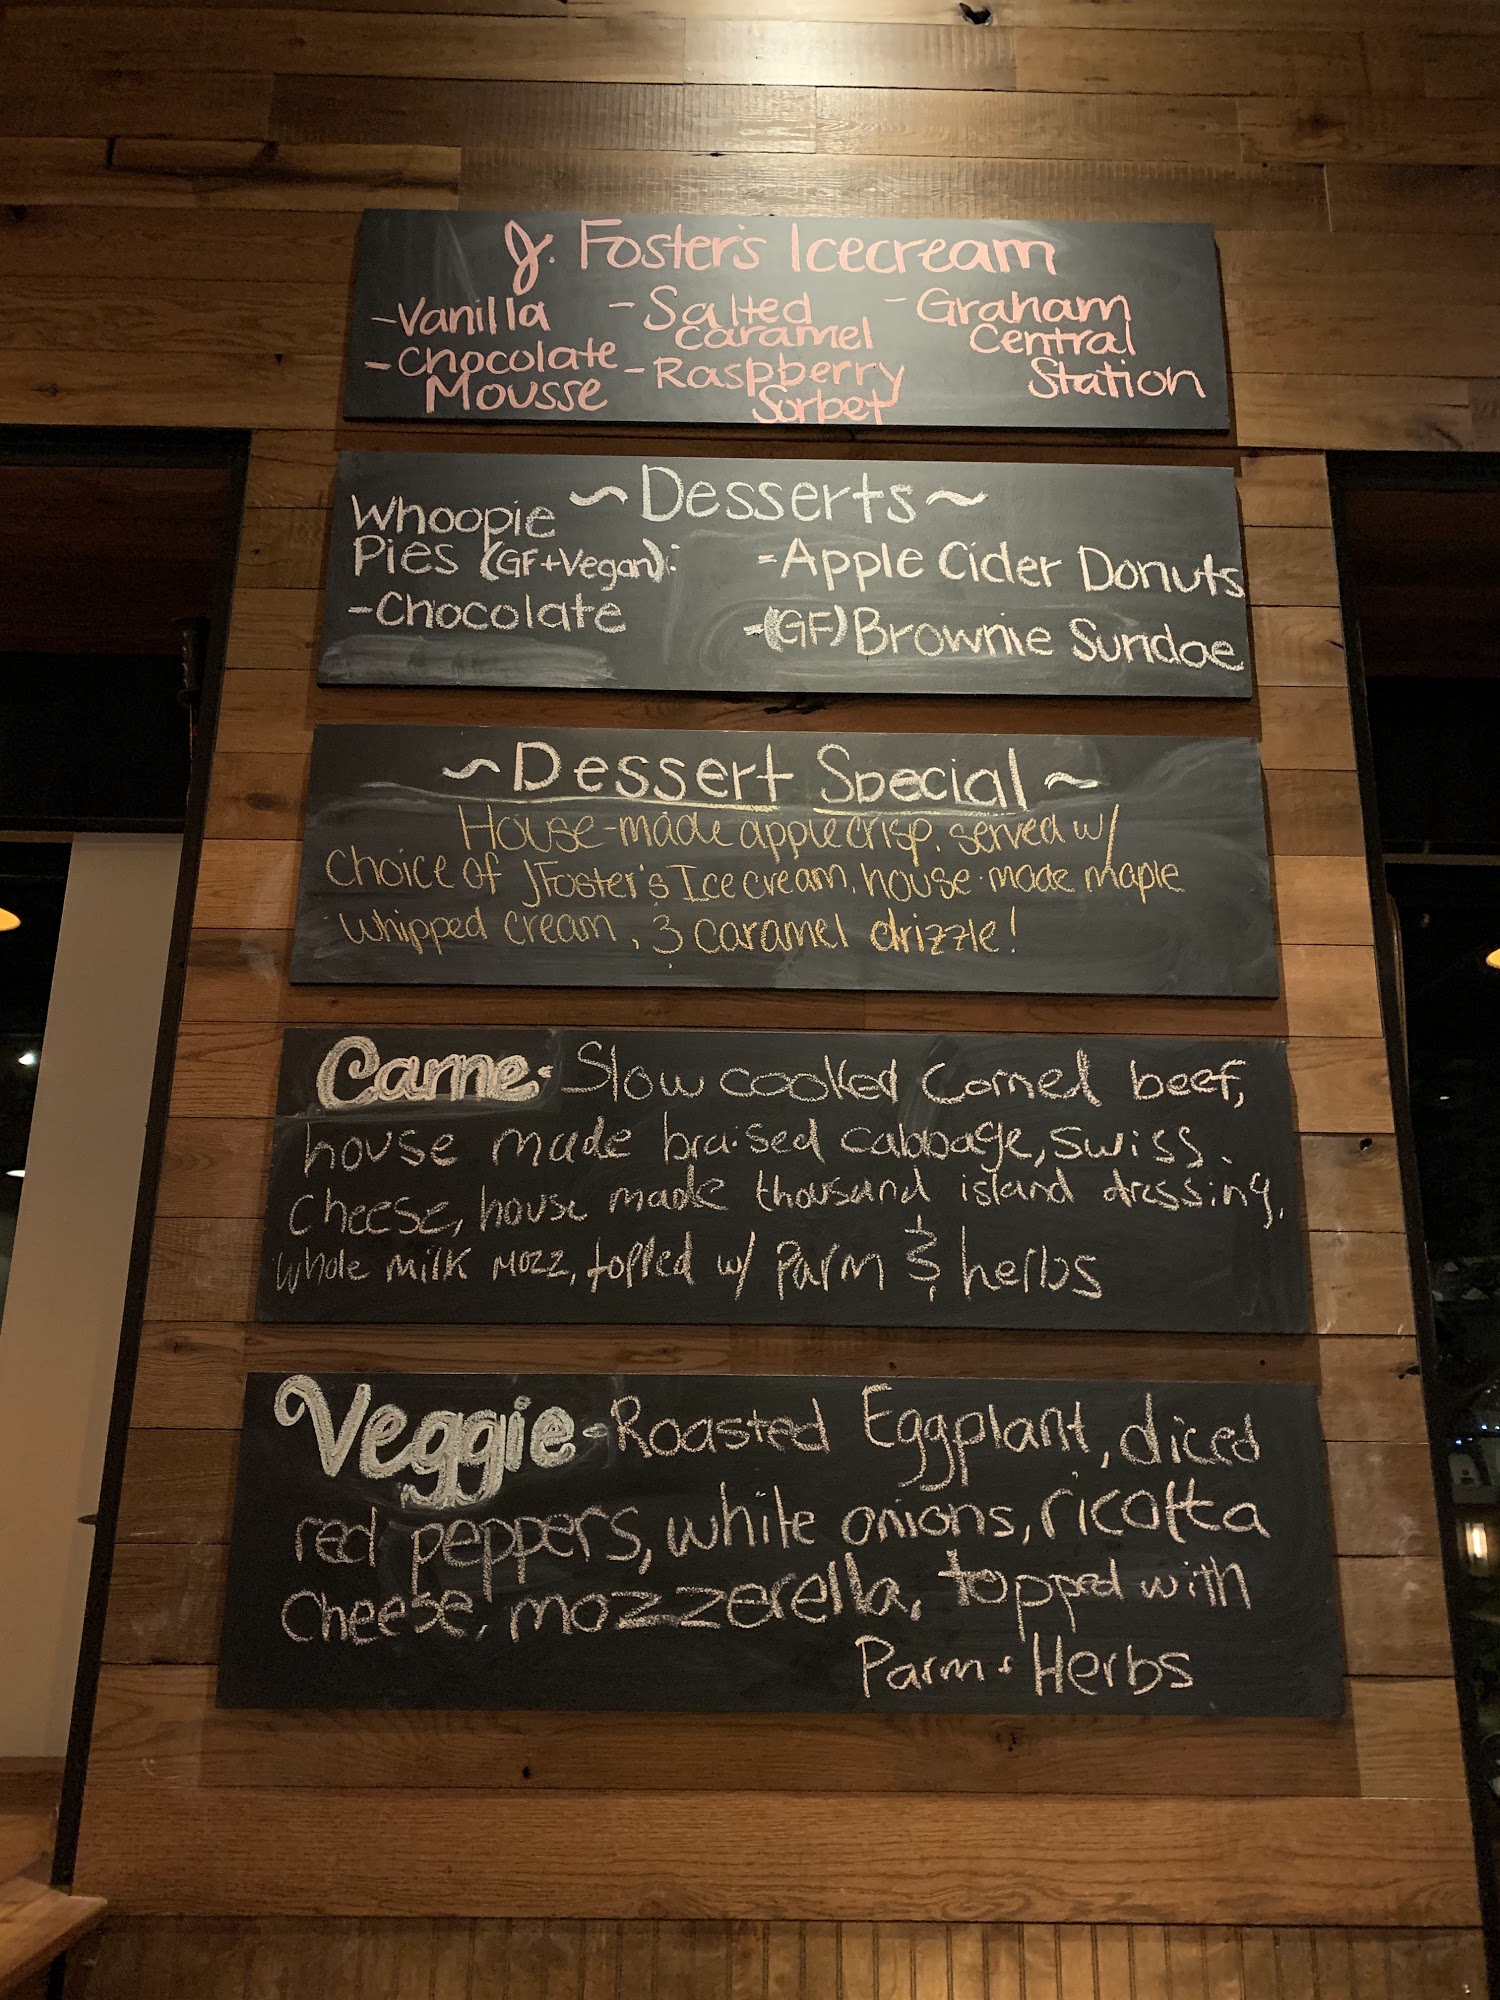 J. Foster's Icecream
-Vanilla
-Chocolate
Mousse
-Salted
caramel
-Raspberry
Sorbet
-Graham
Central
Station
~Desserts~
Whoopie
Pies (GF+Vegan):
-Chocolate
-Apple Cider Donuts
-(GF) Brownie Sundae
~Dessert Special~
House-made apple crisp. served w/
choice of JFoster's Ice cream, house-made maple
whipped cream, & caramel drizzle!
Carne-Slow cooked Corned beef,
house made braised cabbage, swiss
cheese, house made thousand island dressing,
whole milk mozz, topped w/ parm & herbs
Veggie-Roasted Eggplant, diced
red peppers, white onions, ricotta
cheese, mozzerella, topped with
Parm + Herbs